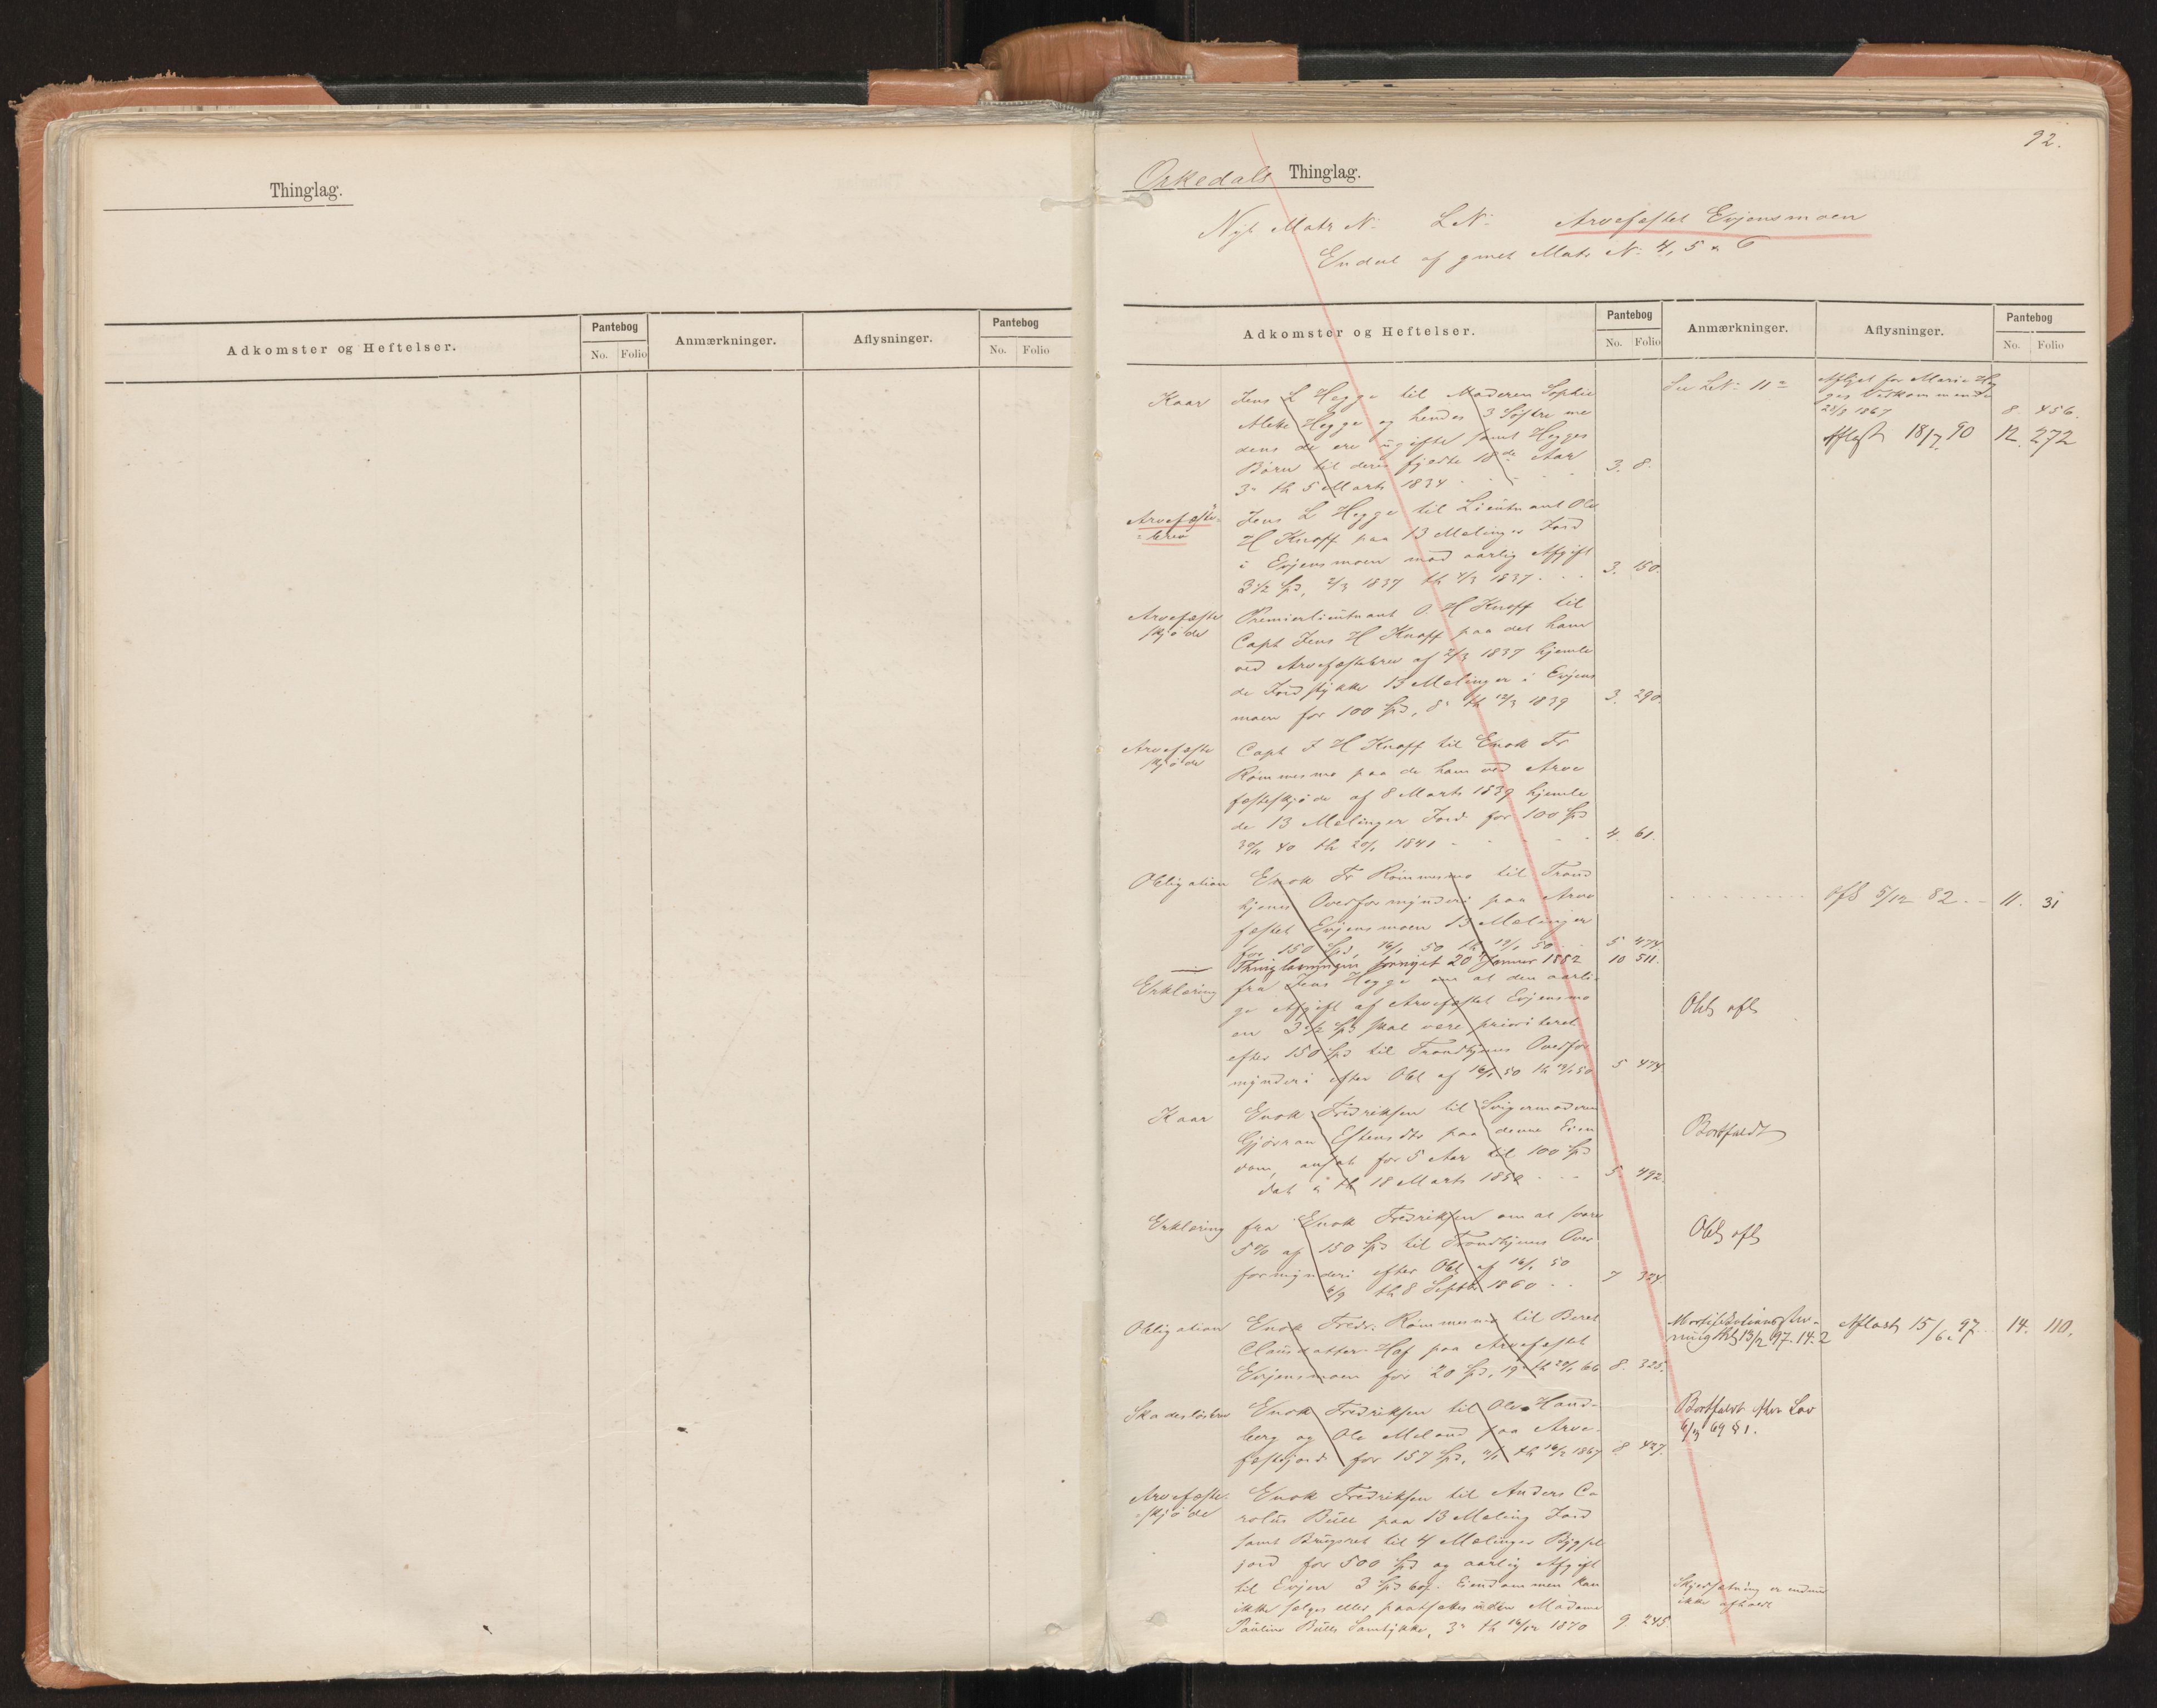 Thinglag.
Adkomster og Heftelser.
Pantebog
No. Folio
Anmærkninger.
Aflysninger.
Pantebog
No. Folio
92.
Orkedals Thinglag.
Nyt Matr N: LN: Arvefæstet Evjensmoen
Endel af gmlt Matr N: 4, 5 & 6
Adkomster og Heftelser.
Pantebog
No. Folio
Anmærkninger.
Aflysninger.
Pantebog
No. Folio
Kaar Jens L Hegge til Moderen Sophie
Hegge og hendes 3 Søstre me
dens de ere ugifte samt Hegges
Børn til deres fyldte 18de Aar
3- th 5 Marts 1834 3. 8.
Se LN: 11
Aflyst for Marie Heg
ges Vedkommende
1867 8. 456.
Aflyst 18/7 90 12. 272
Arvefæste-
brev
Jens L Hegge til Lieutnant Ole
H Knoff paa 13 Mælinger Jord
i Evjensmoen mod aarlig Afgift
3 1/2 Spd, 2/3 1837 th 4/3 1837 3. 150.
Arvefæste
skjøde
Premierlieutnant O H Knoff til
Capt Jens H Knoff paa det ham
ved Arvefæstebrev af 2/3 1837 hjemle
de Jordstykke 13 Mælinger i Evjens
moen for 100 Spd, 8- th 12/3 1839 3. 290.
Arvefæste
skjøde
Capt J H Knoff til Enok Fr
Rømmesmo paa de ham ved Arve
fæsteskjøde af 8 Marts 1839 hjemle
de 13 Mælinger Jord for 100 Spd
40 th 1841 4. 61.
Obligation Enok Fr Rømmesmo til Trond
hjems Overformynderi paa Arve
fæstet Evjensmoen 13 Mælinger
for 150 Spd, 16/1 50 th 19/1 50 5 474.
Thinglæsningen fornyet 20 Januar 1882 10 511.
afl 5/12 82 11. 31
Erklæring fra Jens Hegge om at den aarli
ge Afgift af Arvefæstet Evjensmo
en 3 1/2 Spd skal være prioriteret
efter 150 Spd til Trondhjems Overfor
mynderi efter Obl af 16/1 50 th 19/1 50 5 474
Obl afl
Kaar Enok Fredriksen til Svigermoderen
Gjørran Estensdtr paa denne Eien
dom, ansat for 5 Aar til 100 Spd
dat & th 18 Marts 5. 492.
Bortfaldt
Erklæring fra Enok Fredriksen om at svare
5% af 150 Spd til Trondhjems Over
formynderi efter Obl af 16/1 50
th 8 Septbr 1860 7 324
Obl afl
Obligation Enok Fredr. Rømmesmo til Beret
Clausdatter Hof paa Arvefæstet
Evjensmoen for 20 Spd, 19- th 66 8. 325.
Mortifikations
13/2 97. 14. 2
Aflæst 15/6 97 14. 110.
Skadesløsbrev Enok Fredriksen til Ole Hand-
berg og Ole Meland paa Arve-
fæstejord for 157 Spd, th 1867 8 427.
Bortfaldt efter Lov
69 § 1.
Arvefæste-
skjøde
Enok Fredriksen til Anders Ca
rolus Bull paa 13 Mæling Jord
samt Brugsret til 4 Mælinger Bygsel
jord for 500 Spd og aarlig Afgift
til Evjen 3 Spd 60 s. Eiendommen kan
ikke sælges eller pantsættes uden Madame
Pauline Bulls Samtykke, 3- th 16/12 1870 9. 245.
Skjødsætning er endnu
ikke afholdt